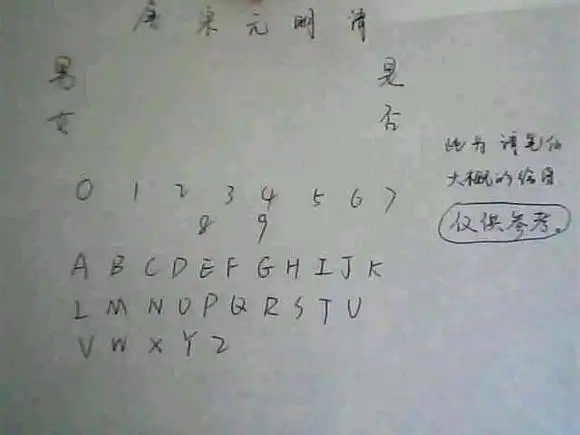 唐 宋 元 明 清
男 是
女 否
0 1 2 3 4 5 6 7
8 9
A B C D E F G H I J K
L M N O P Q R S T U
V W X Y Z
此为请笔仙
大概的绘图
仅供参考。